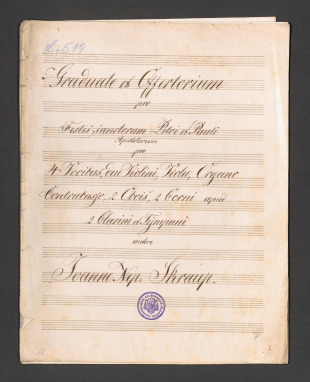 Graduale et Offertorium
pro
Festis Sanctorum Petri et Pauli
Apostolorum
pro
4 Vocibus, duo Violini, Viola, Organo
Contrabasso, 2 Obois, 2 Corni
2 Clarini et Tympani
Joanne Nep. Skraup.